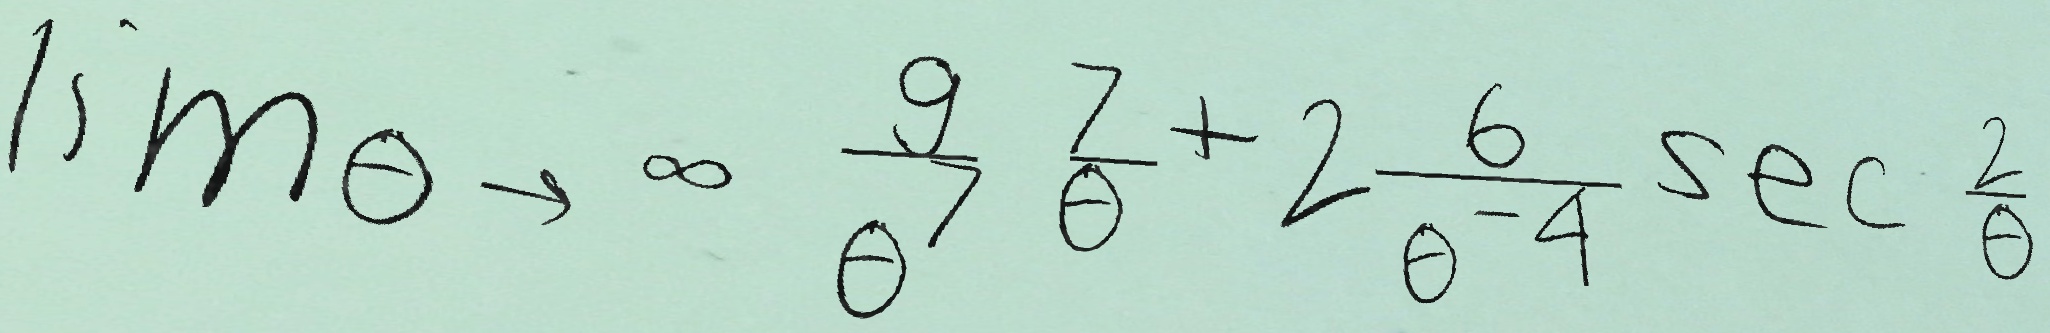 \lim_{\theta \to \infty} \frac{9}{\theta^7} \frac{7}{\theta} + 2 \frac{6}{\theta^{-4}} \sec \frac{2}{\theta}